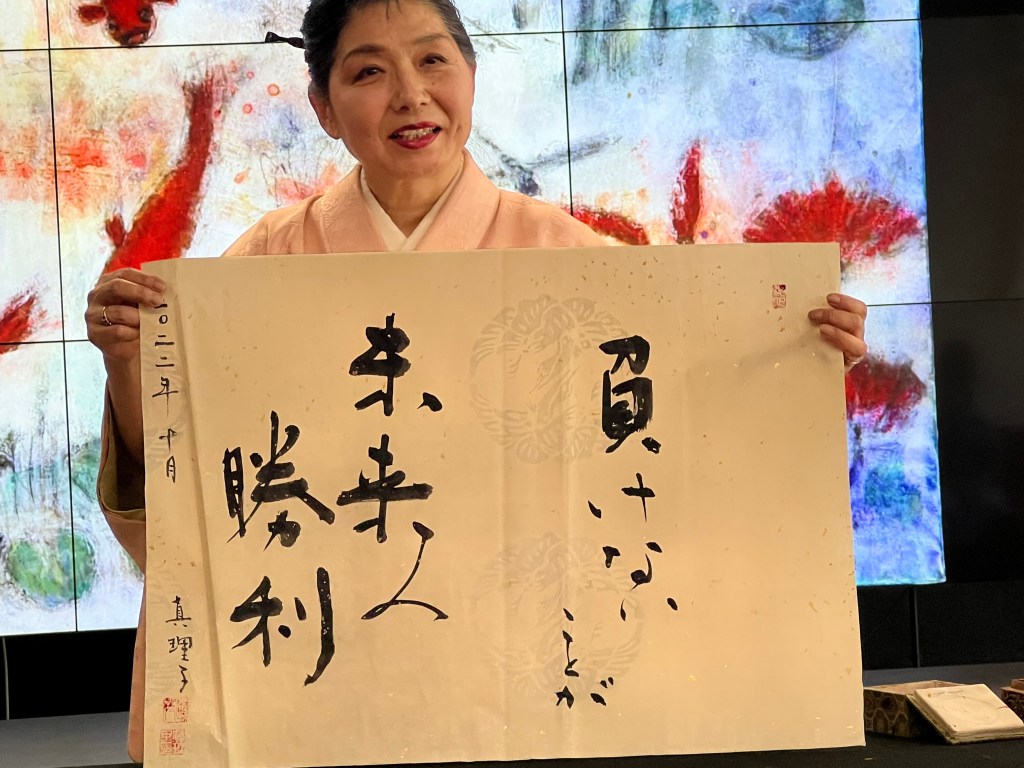 負けない
ことが
未来人
勝利
二〇二二年 十月 真理子